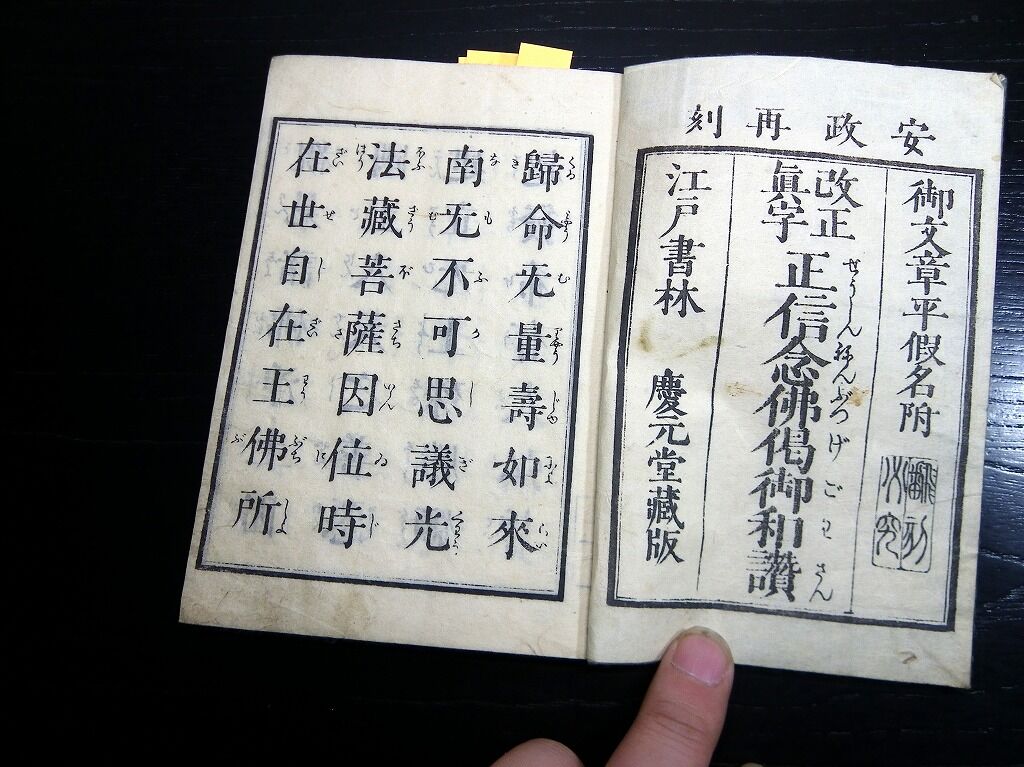 安政再刻
御文章平假名附
改正
眞字
正信念佛偈御和讚
せうしんねんぶつげごわさん
江戸書林 慶元堂藏版
歸命无量壽如來
南无不可思議光
法藏菩薩因位時
在世自在王佛所